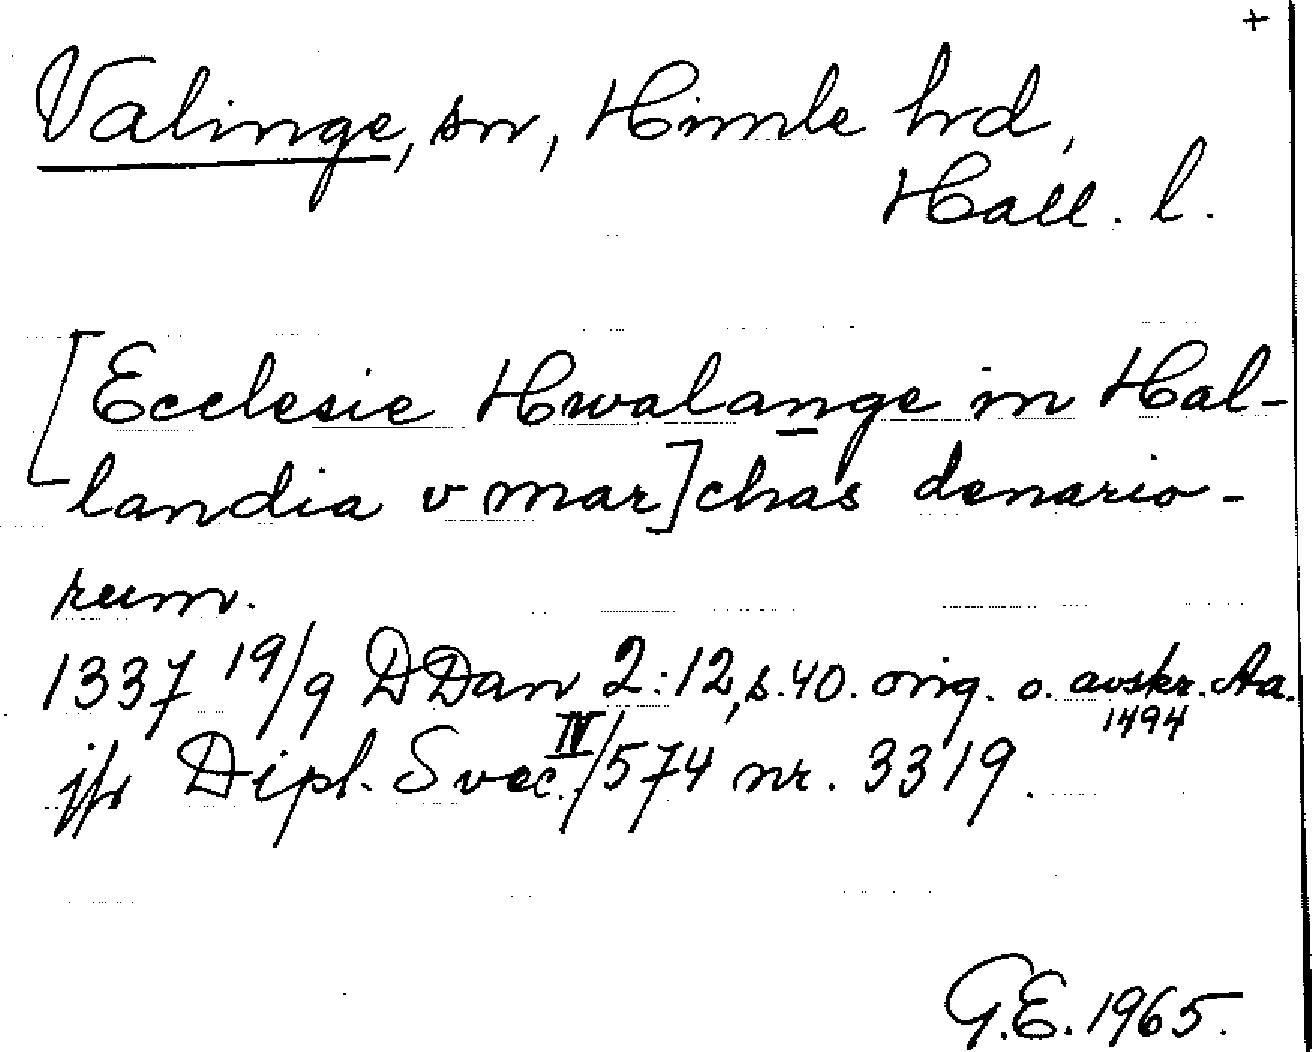 +
Valinge, sn, Himle hd,
Hall. l.
[Ecclesie Hwalange in Hal-
landia v mar]chas denario-
rum.
1337 19/9 DDan 2:12, s.40. orig. o. avskr. Aa.
1494
jfr Dipl. Svec. IV/574 nr. 3319.
G.E. 1965.